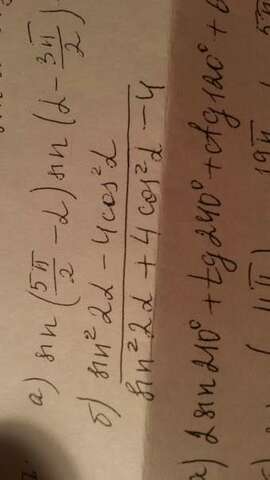 а) sin(5π/2 - α) sin(α - 3π/2)
б) sin²2α - 4cos²α
sin²2α + 4cos²α - 4
а) 2sin210° + tg240° + ctg120° +